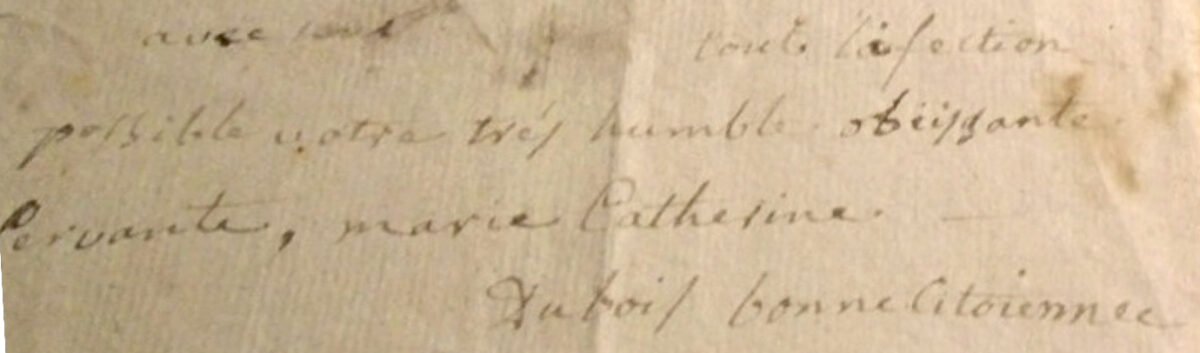 avec toute l'afection
possible votre trés humble obeissante
servante, marie Catherine
Dubois bonne Citoienne